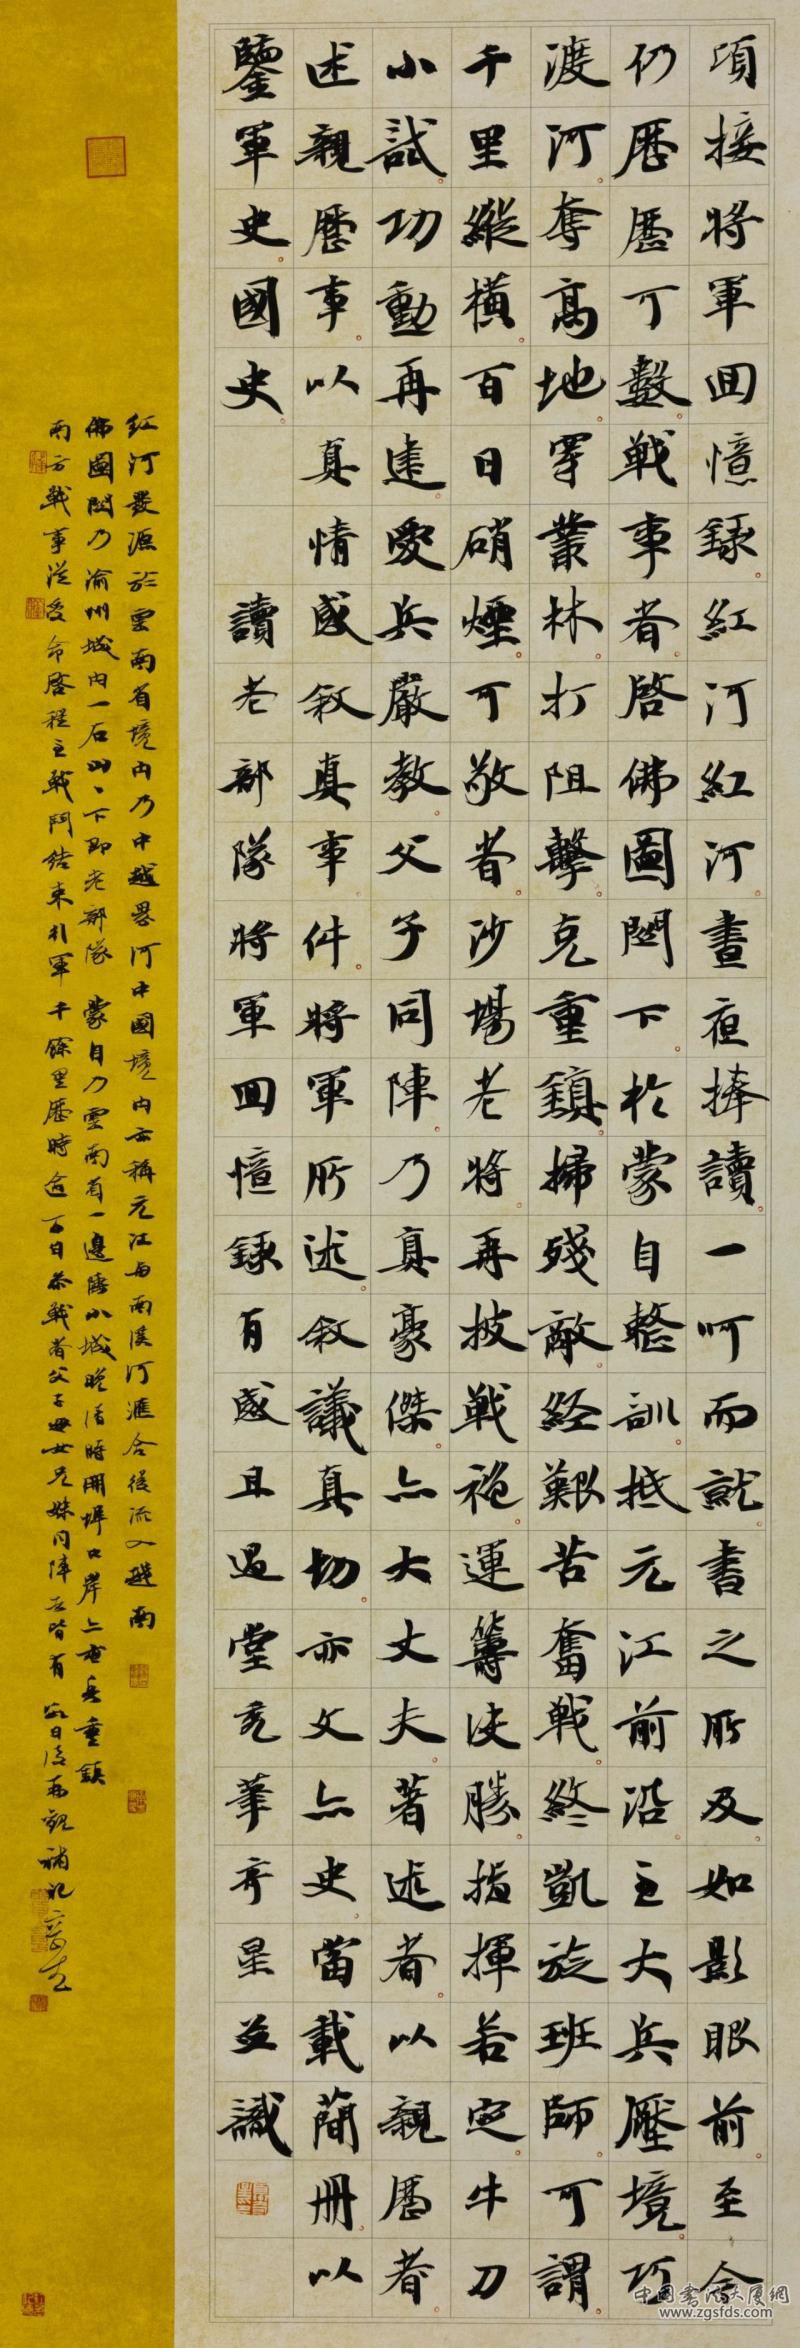 頃接將軍回憶錄紅河紅河晝夜捧讀一呵而就書之所及如影眼前至今
仍歷歷可數戰事者啓佛圖關下於蒙自整訓抵元江前沿之大兵壓境巧
渡河奪高地穿叢林打阻擊克重鎮掃殘敵經艱苦奮戰終凱旋班師可謂
千里縱橫百日硝煙可敬者沙場老將再披戰袍運籌決勝指揮若定牛刀
小試功勳再建愛兵嚴教父子同陣乃真豪傑亦大丈夫著述者以親歷者
述親歷事以真情感叙真事件將軍所述叙議真切亦文亦史當載簡冊以
鑒軍史國史
讀老部隊將軍回憶錄有感且過堂亮筆齊星並識
紅河發源於雲南省境内乃中越界河中國境内亦稱元江與南溪河滙合後流入越南
佛圖關乃渝州城内一石山山下即老部隊 蒙自乃雲南省一邊陲小城晚清時開埠口岸亦古兵重鎮
兩方戰事從受命啓程至戰鬥結束行軍千餘里歷時逾百日參戰者父子母女兄妹同陣者皆有 數日後再觀補記
中国书法大厦网
www.zgsfds.com